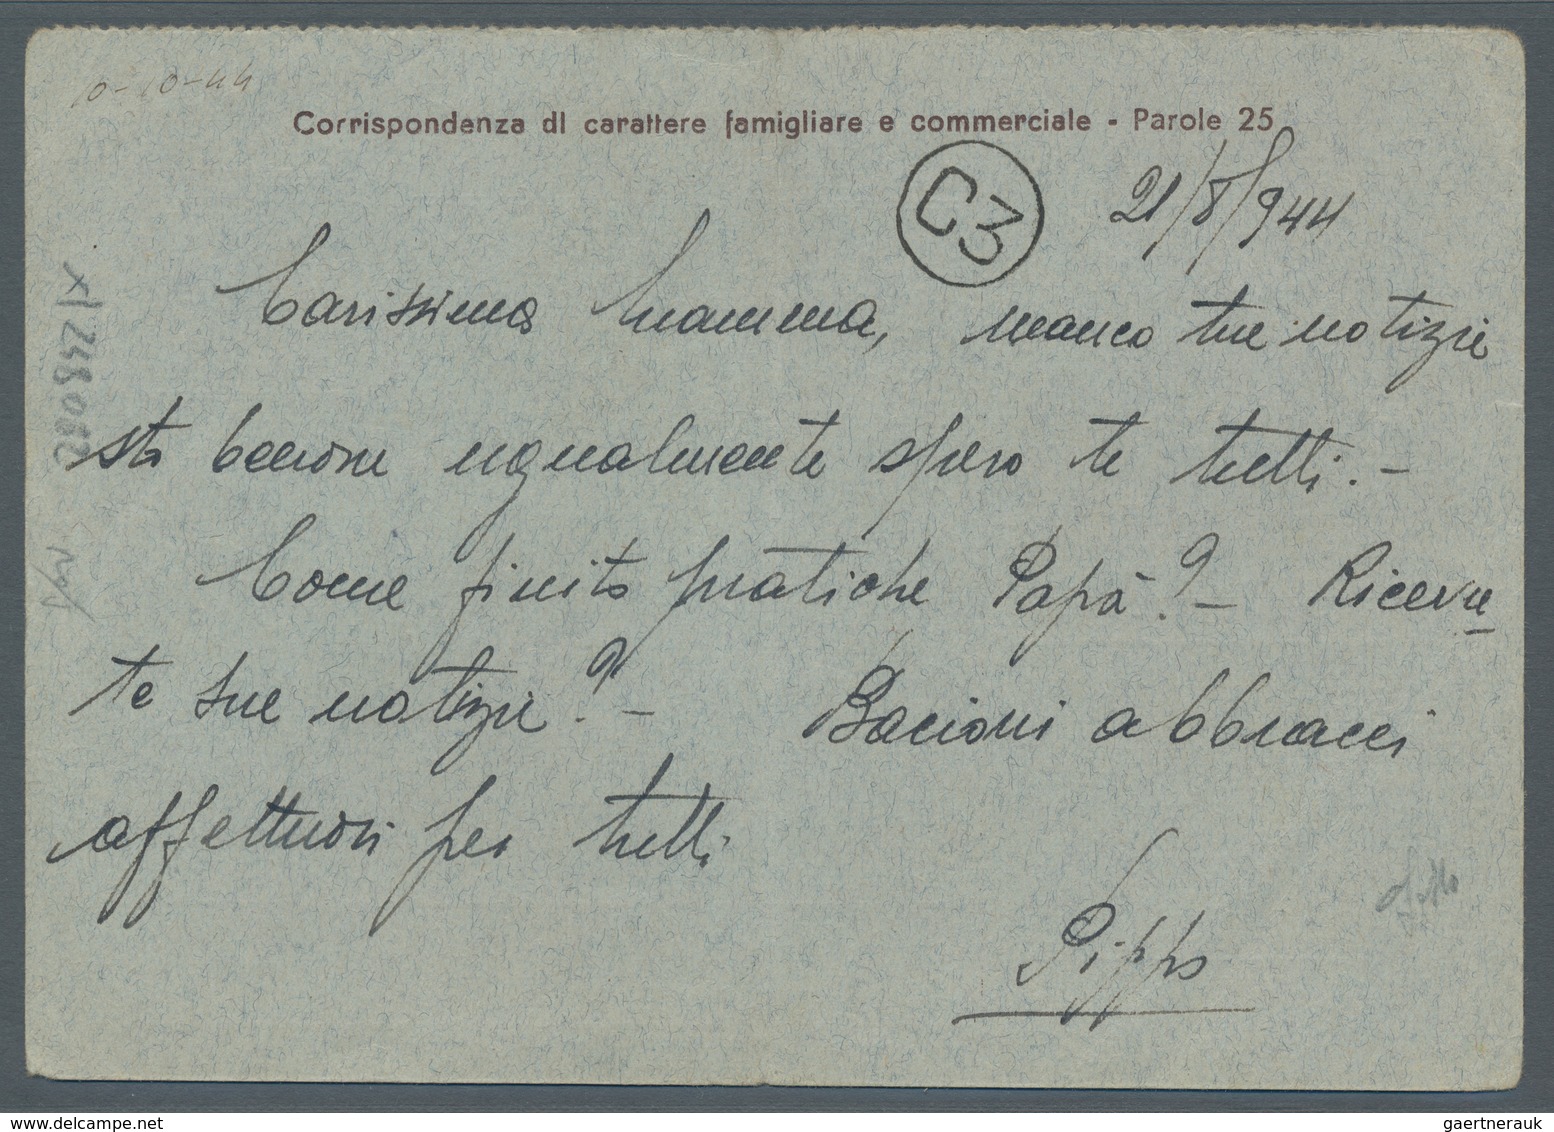 10-10-44
Corrispondenza di carattere famigliare e commerciale - Parole 25
C3
21/8/944
Carissima Mamma, manco tue notizie
sto benone ugualmente spero te tutti. -
Come finito pratiche Papà? - Ricevu
te sue notizie? - Bacioni abbracci
affettuosi per tutti
Pippo
x1248082
gaertnerauk @ delcampe.net